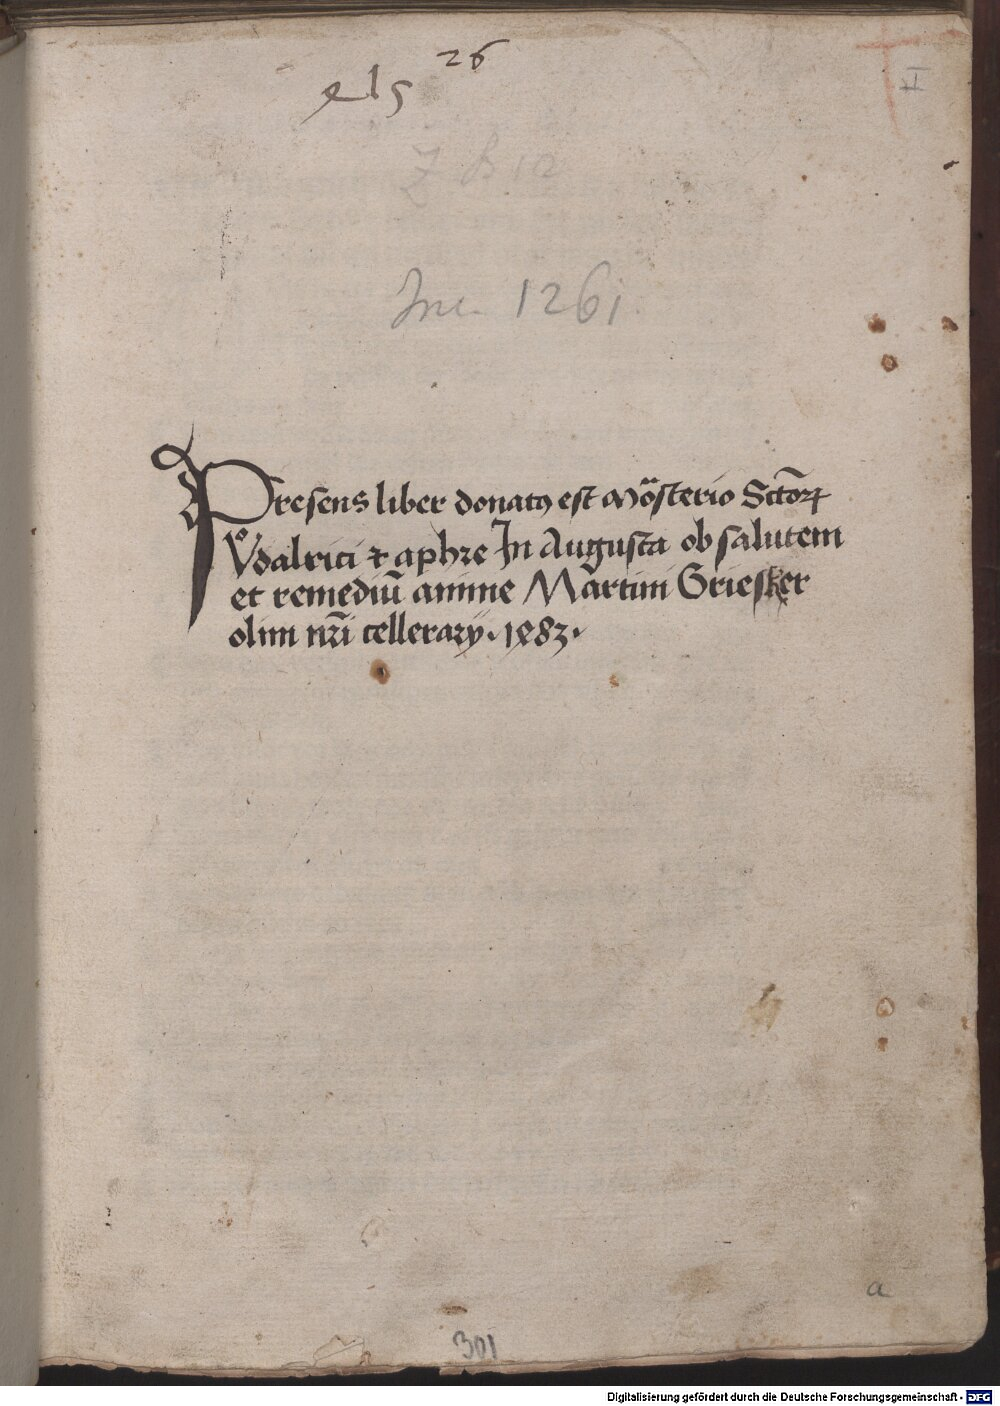 26
els
II
Z B 12
Inc. 1261.
Presens liber donatꝯ est Moͣsterio Sctōꝝ
Vͦdalrici ⁊ aphre In Augusta ob salutem
et remediū anime Martini Griesker
olim nr̄i cellerarij · 1483 ·
a
301
Digitalisierung gefördert durch die Deutsche Forschungsgemeinschaft - DFG